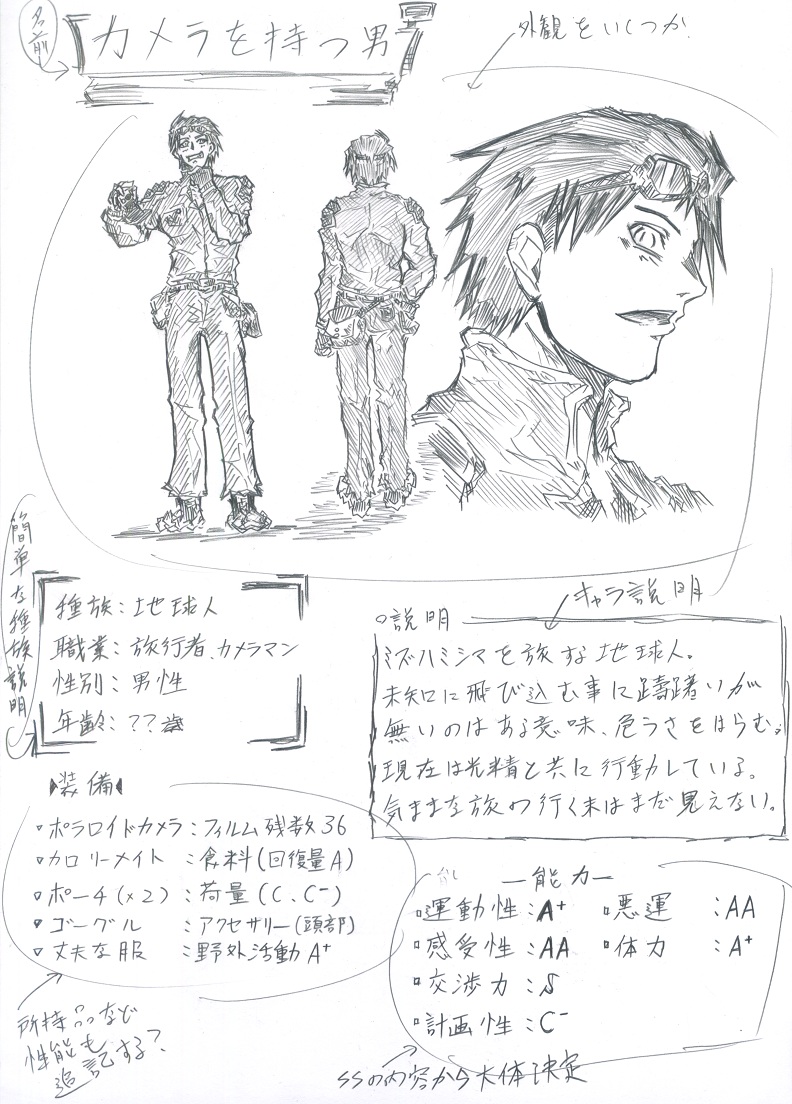 名前
カメラを持つ男
外観をいくつか
簡単な種族説明
種族：地球人
職業：旅行者、カメラマン
性別：男性
年齢：??歳
キャラ説明
説明
ミズハミシマを旅する地球人。
未知に飛び込む事に躊躇いが
無いのはある意味、危うさをはらむ。
現在は光精と共に行動している。
気ままな旅の行く末はまだ見えない。
装備
ポラロイドカメラ：フィルム残数36
カロリーメイト：食料(回復量A)
ポーチ(×2)：荷量(C、C⁻)
ゴーグル：アクセサリー(頭部)
丈夫な服：野外活動A⁺
所持品など
性能も
追記する?
能力
運動性：A⁺ 悪運：AA
感受性：AA 体力：A⁺
交渉力：S
計画性：C⁻
SSの内容から大体決定